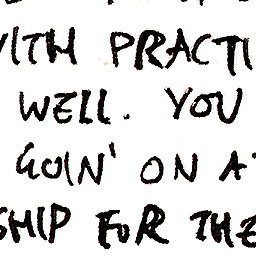 WITH PRACTI
WELL. YOU
GOIN' ON AT
SHIP FOR THE